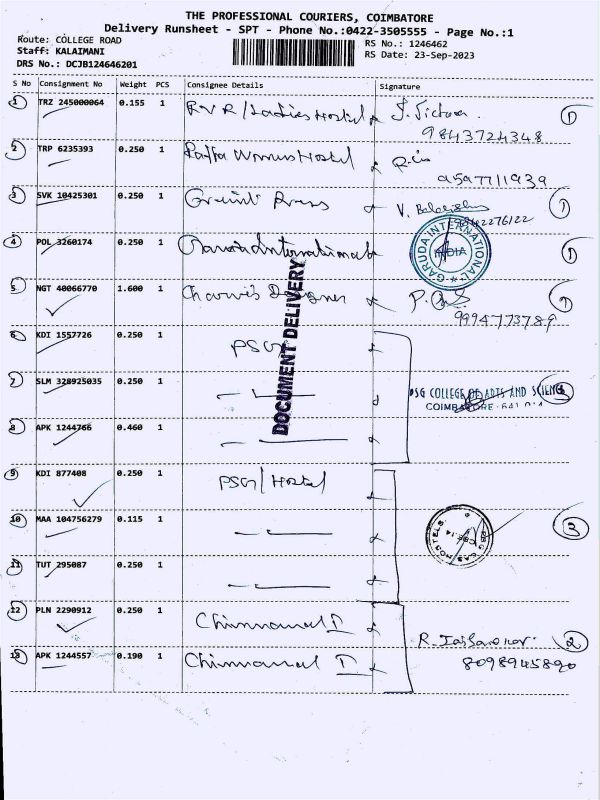 THE PROFESSIONAL COURIERS, COIMBATORE
Delivery Runsheet - SPT - Phone No.:0422-3505555 - Page No.:1
Route: COLLEGE ROAD
RS No.: 1246462
Staff: KALAIMANI
RS Date: 23-Sep-2023
DRS No.: DCJB124646201
S No Consignment No Weight PCS Consignee Details Signature
1 TRZ 245000064 0.155 1 RVR/Ladies Hostel J. Victora
9843724348 1
2 TRP 6235393 0.250 1 Womens Hostel
9597711939
3 SVK 10425301 0.250 1 Press V.
9842276122 1
4 POL 3260174 0.250 1 International GARUDA INTERNATIONAL INDIA 1
5 NGT 40066770 1.600 1 Designer
9994773789 1
DOCUMENT DELIVERY
6 KDI 1557726 0.250 1 PSG
7 SLM 328925035 0.250 1 PSG COLLEGE OF ARTS AND SCIENCE 3
COIMBATORE - 641 014
8 APK 1244766 0.460 1
9 KDI 877408 0.250 1 PSG/Hostel
10 MAA 104756279 0.115 1 PSG CAS HOSTELS 3
11 TUT 295087 0.250 1
12 PLN 2290912 0.250 1 R. 2
13 APK 1244557 0.190 1 8098945890